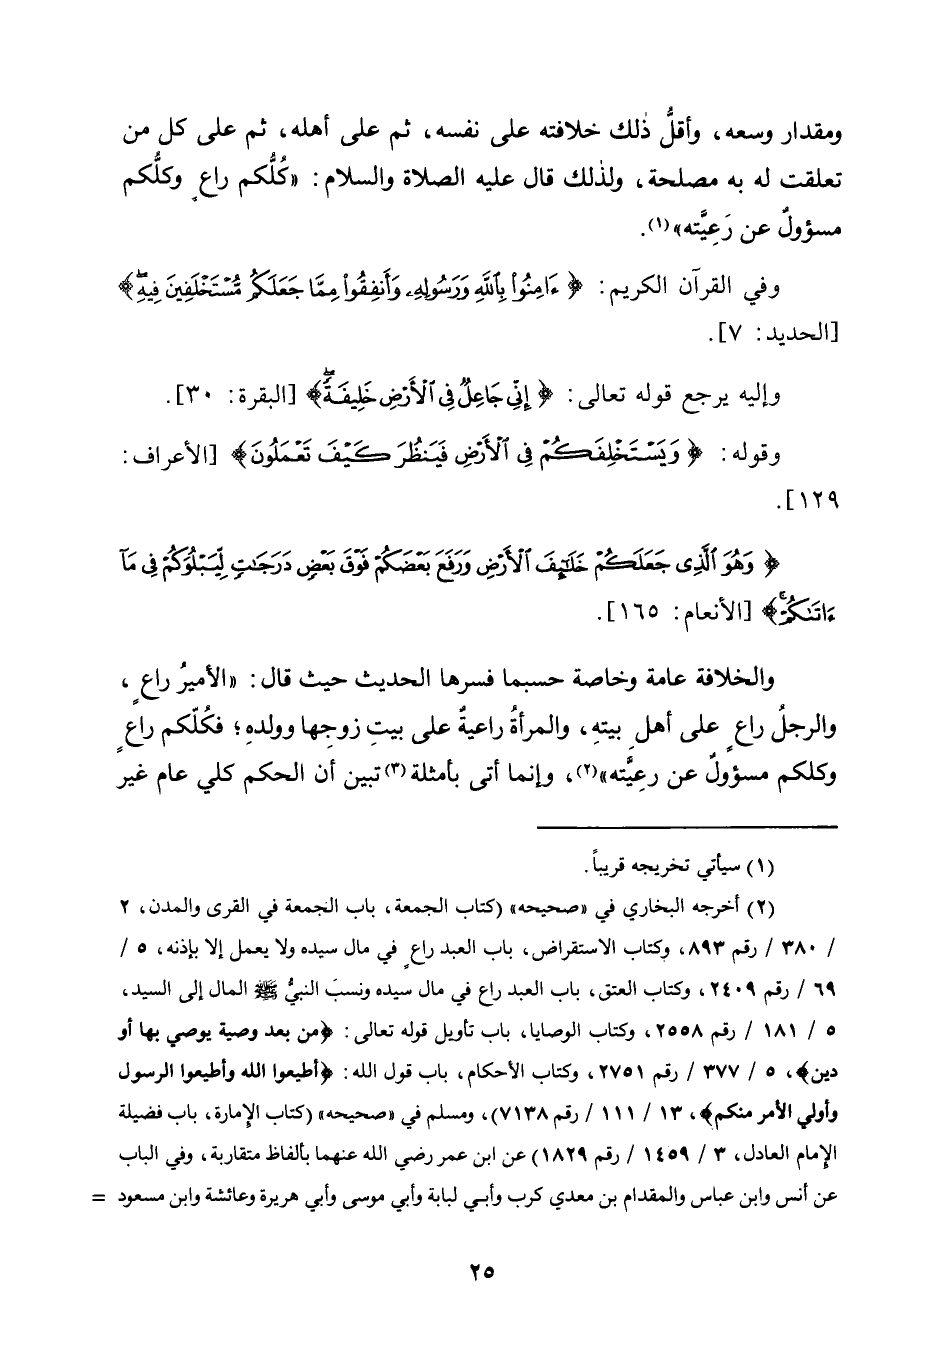 ومقدار وسعه، وأقلُّ ذٰلك خلافته على نفسه، ثم على أهله، ثم على كل من
تعلقت له به مصلحة، ولذٰلك قال عليه الصلاة والسلام: «كُلُّكم راعٍ وكلُّكم
مسؤولٌ عن رَعِيَّته»(١).
وفي القرآن الكريم: ﴿ ءَامِنُواْ بِٱللَّهِ وَرَسُولِهِۦ وَأَنفِقُواْ مِمَّا جَعَلَكُم مُّسۡتَخۡلَفِينَ فِيهِۖ﴾
[الحديد: ٧].
وإليه يرجع قوله تعالى: ﴿ إِنِّي جَاعِلٞ فِي ٱلۡأَرۡضِ خَلِيفَةٗۖ﴾ [البقرة: ٣٠].
وقوله: ﴿ وَيَسۡتَخۡلِفَكُمۡ فِي ٱلۡأَرۡضِ فَيَنظُرَ كَيۡفَ تَعۡمَلُونَ﴾ [الأعراف:
١٢٩].
﴿ وَهُوَ ٱلَّذِي جَعَلَكُمۡ خَلَٰٓئِفَ ٱلۡأَرۡضِ وَرَفَعَ بَعۡضَكُمۡ فَوۡقَ بَعۡضٖ دَرَجَٰتٖ لِّيَبۡلُوَكُمۡ فِي مَآ
ءَاتَىٰكُمۡۗ﴾ [الأنعام: ١٦٥].
والخلافة عامة وخاصة حسبما فسرها الحديث حيث قال: «الأميرُ راعٍ،
والرجلُ راعٍ على أهلِ بيتهِ، والمرأةُ راعيةٌ على بيتِ زوجِها وولدهِ؛ فكُلّكم راعٍ
وكلكم مسؤولٌ عن رعِيَّته»(٢)، وإنما أتى بأمثلة(٣) تبين أن الحكم كلي عام غير
(١) سيأتي تخريجه قريباً.
(٢) أخرجه البخاري في «صحيحه» (كتاب الجمعة، باب الجمعة في القرى والمدن، ٢
/ ٣٨٠ / رقم ٨٩٣، وكتاب الاستقراض، باب العبد راعٍ في مال سيده ولا يعمل إلا بإذنه، ٥ /
٦٩ / رقم ٢٤٠٩، وكتاب العتق، باب العبد راع في مال سيده ونسبَ النبيُّ ﷺ المال إلى السيد،
٥ / ١٨١ / رقم ٢٥٥٨، وكتاب الوصايا، باب تأويل قوله تعالى: ﴿من بعد وصية يوصي بها أو
دين﴾، ٥ / ٣٧٧ / رقم ٢٧٥١، وكتاب الأحكام، باب قول الله: ﴿أطيعوا الله وأطيعوا الرسول
وأولي الأمر منكم﴾، ١٣ / ١١١ / رقم ٧١٣٨)، ومسلم في «صحيحه» (كتاب الإمارة، باب فضيلة
الإمام العادل، ٣ / ١٤٥٩ / رقم ١٨٢٩) عن ابن عمر رضي الله عنهما بألفاظ متقاربة، وفي الباب
عن أنس وابن عباس والمقدام بن معدي كرب وأبي لبابة وأبي موسى وأبي هريرة وعائشة وابن مسعود =
٢٥